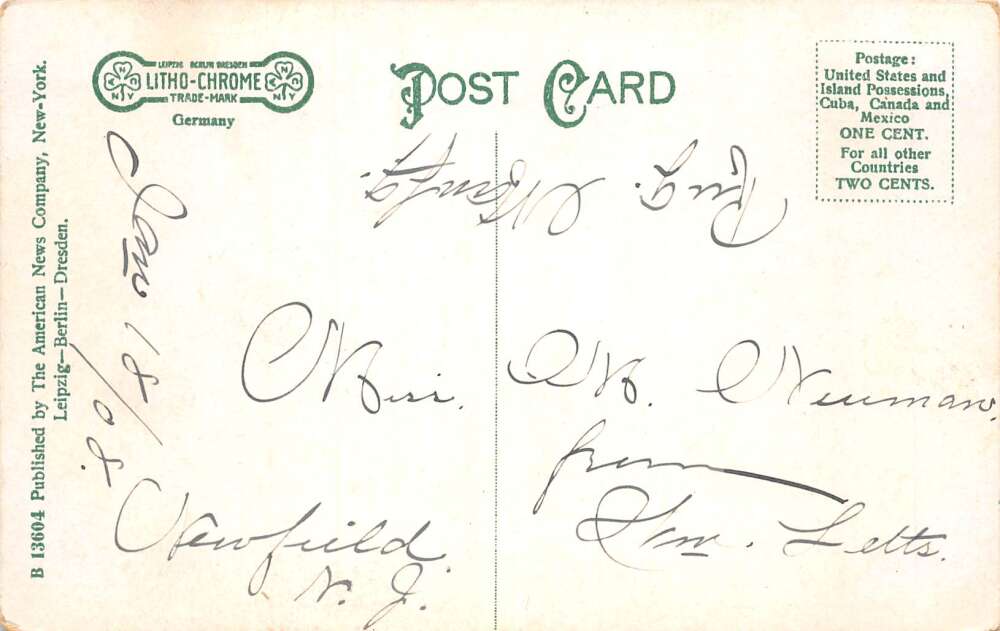 B 13604 Published by The American News Company, New-York.
Leipzig—Berlin—Dresden.
LEIPZIG BERLIN DRESDEN
LITHO-CHROME
TRADE-MARK
Germany
POST CARD
Postage:
United States and
Island Possessions,
Cuba, Canada and
Mexico
ONE CENT.
For all other
Countries
TWO CENTS.
Jan 18/08.
Miss. M. Neuman.
from
Wm. Letts.
Newfield
N. J.